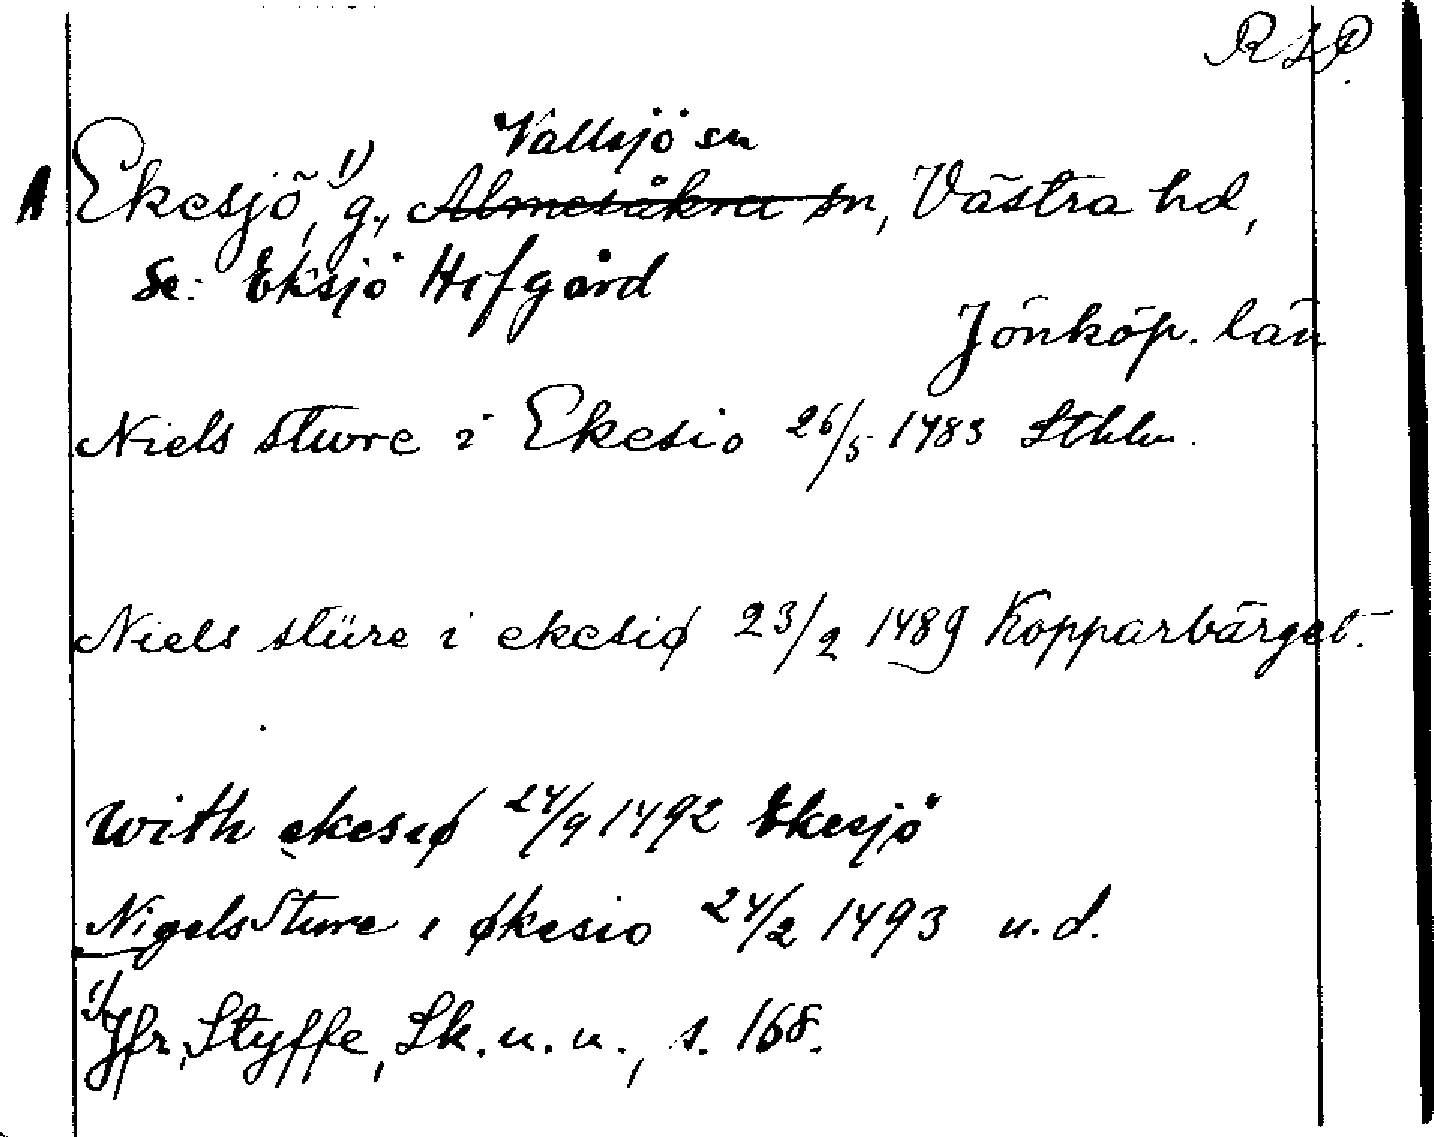 RSP.
Vallsjö sn
Ekesjö,¹⁾ g., Almesåkra sn, Västra hd,
Se: Eksjö Hofgård
Jönköp. län
Niels sture i Ekesio 26/5 1483 Sthlm.
Niels stüre i ekesiø 23/2 1489 Kopparbärget.
With ekesiø 24/9 1492 Ekesjö
Nigels Sture i økesio 24/2 1493 u.d.
¹⁾ Jfr, Styffe, Sk. u. u., s. 168.